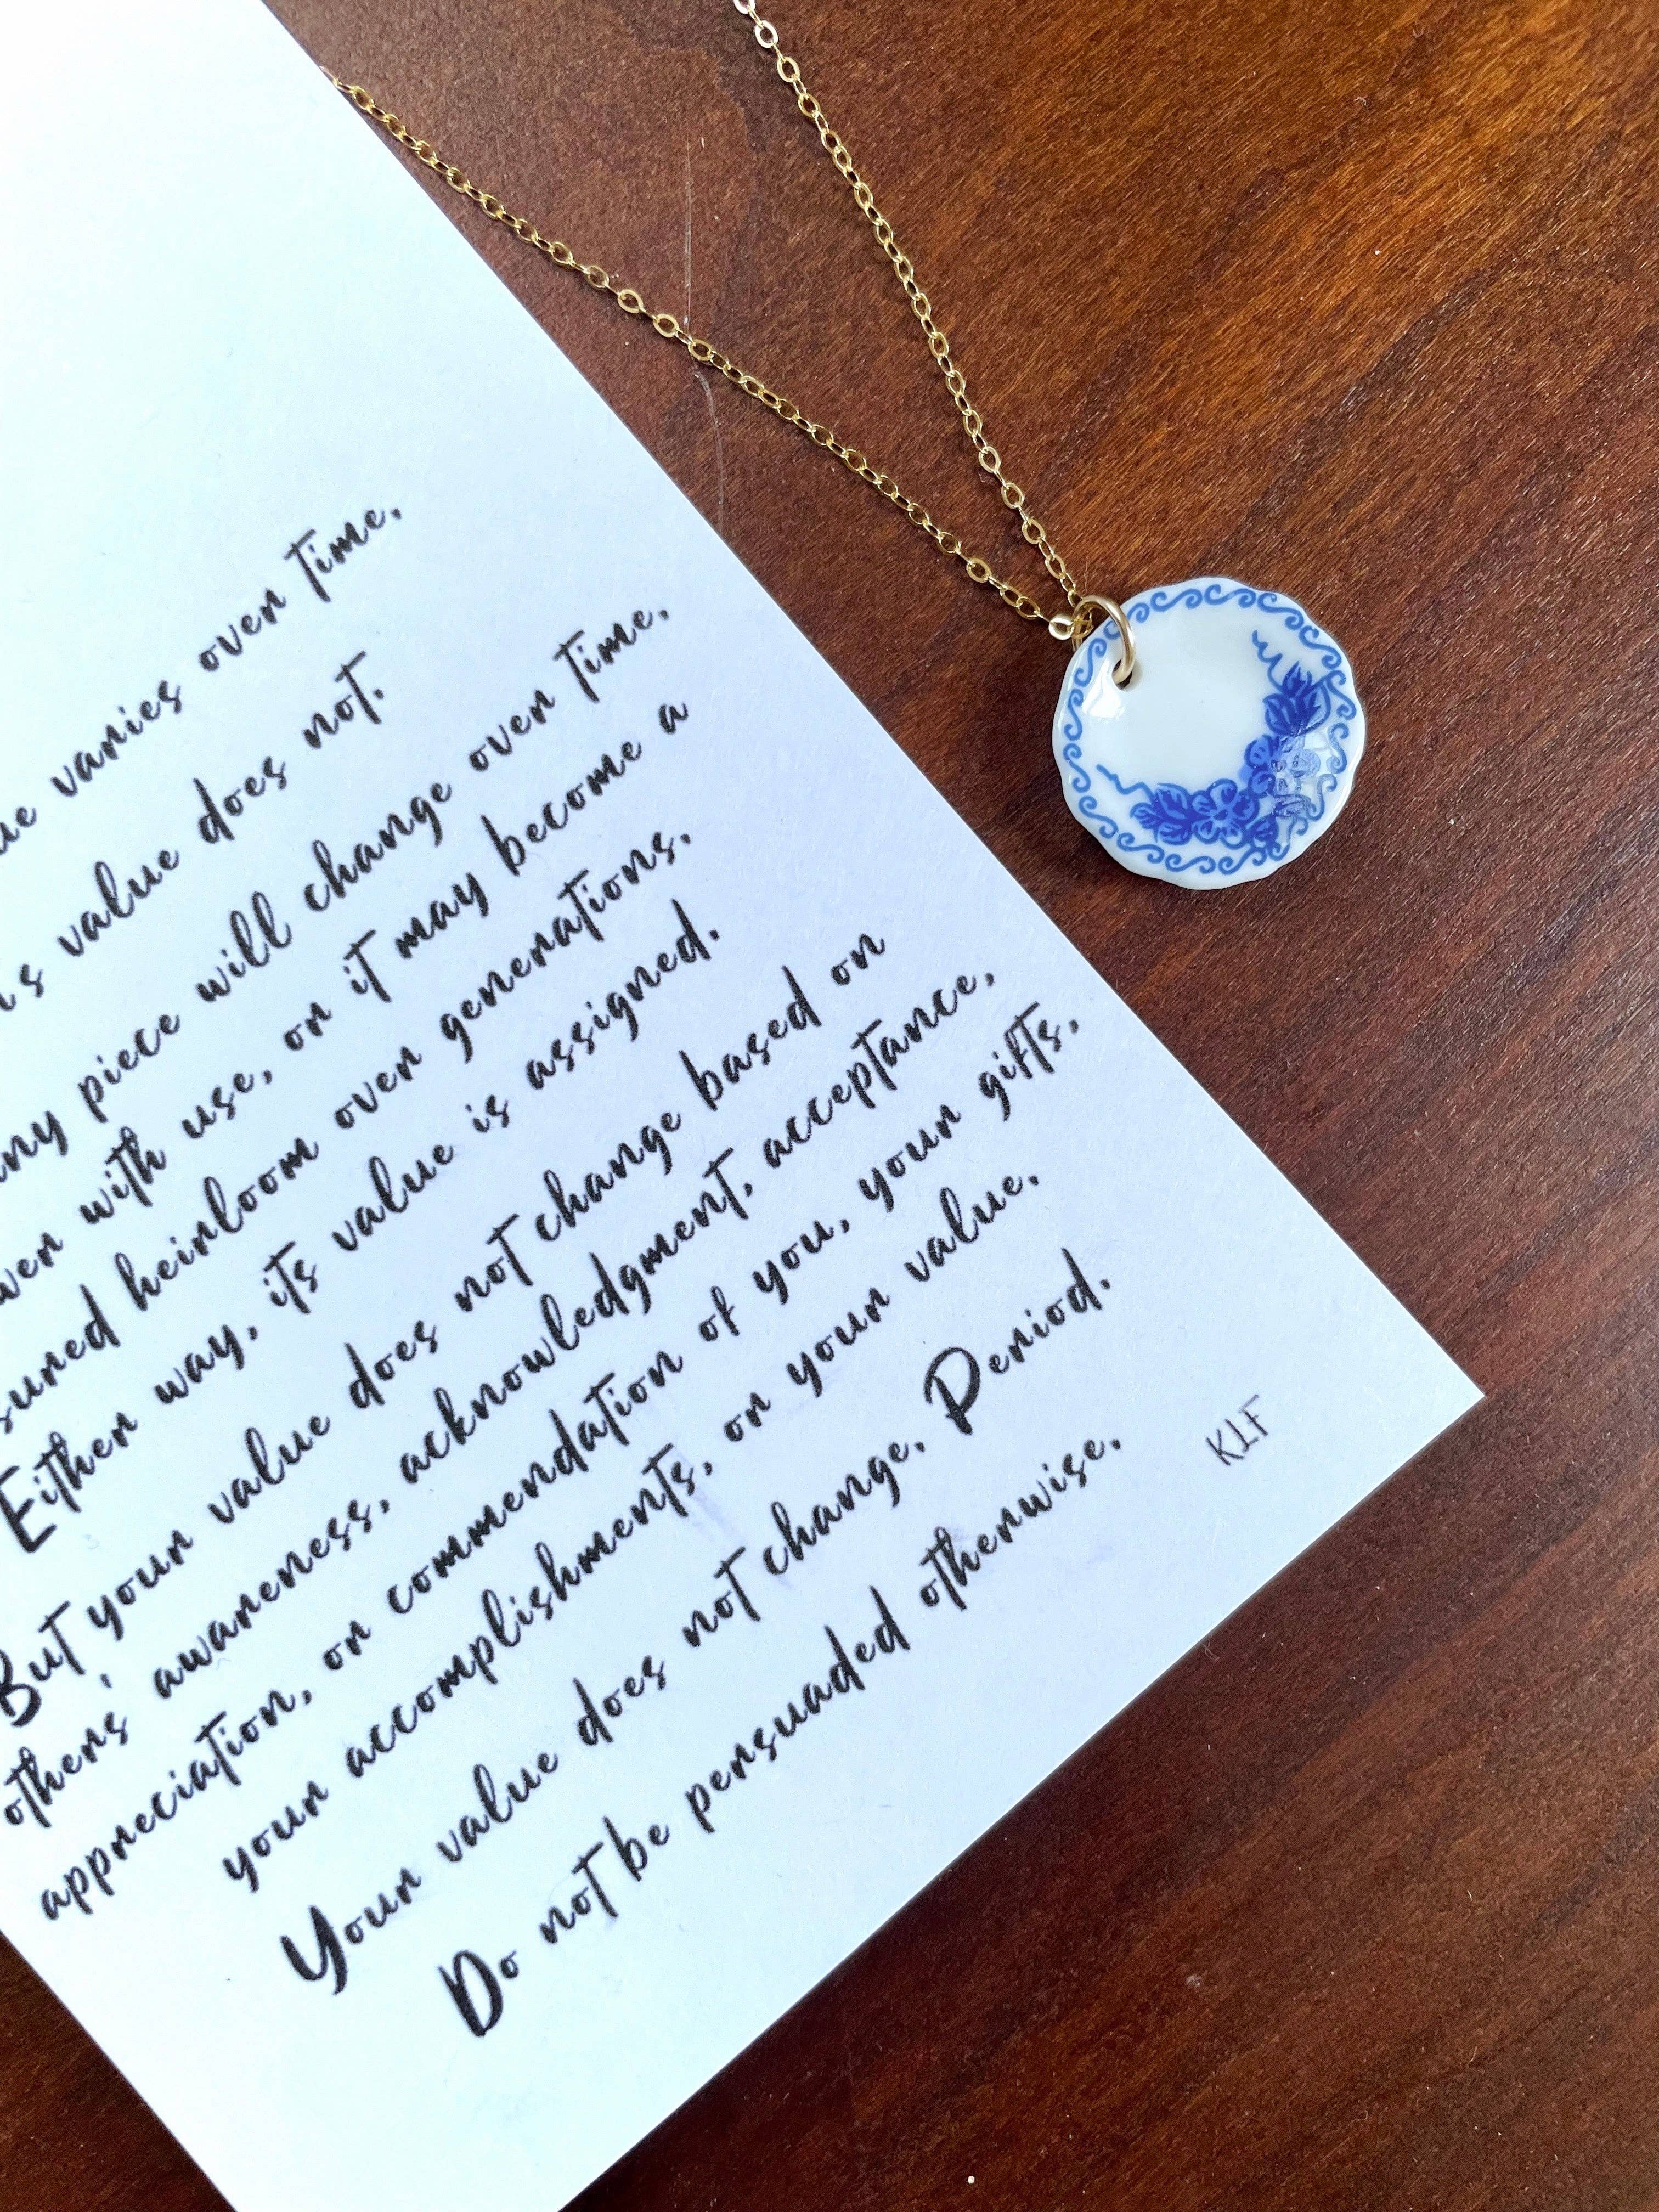 varies over time.
value does not.
piece will change over time.
with use, or it may become a
heirloom over generations.
Either way, its value is assigned.
But your value does not change based on
others' awareness, acknowledgment, acceptance,
appreciation, or commendation of you, your gifts,
your accomplishments, or your value.
Your value does not change. Period.
Do not be persuaded otherwise.
KLF